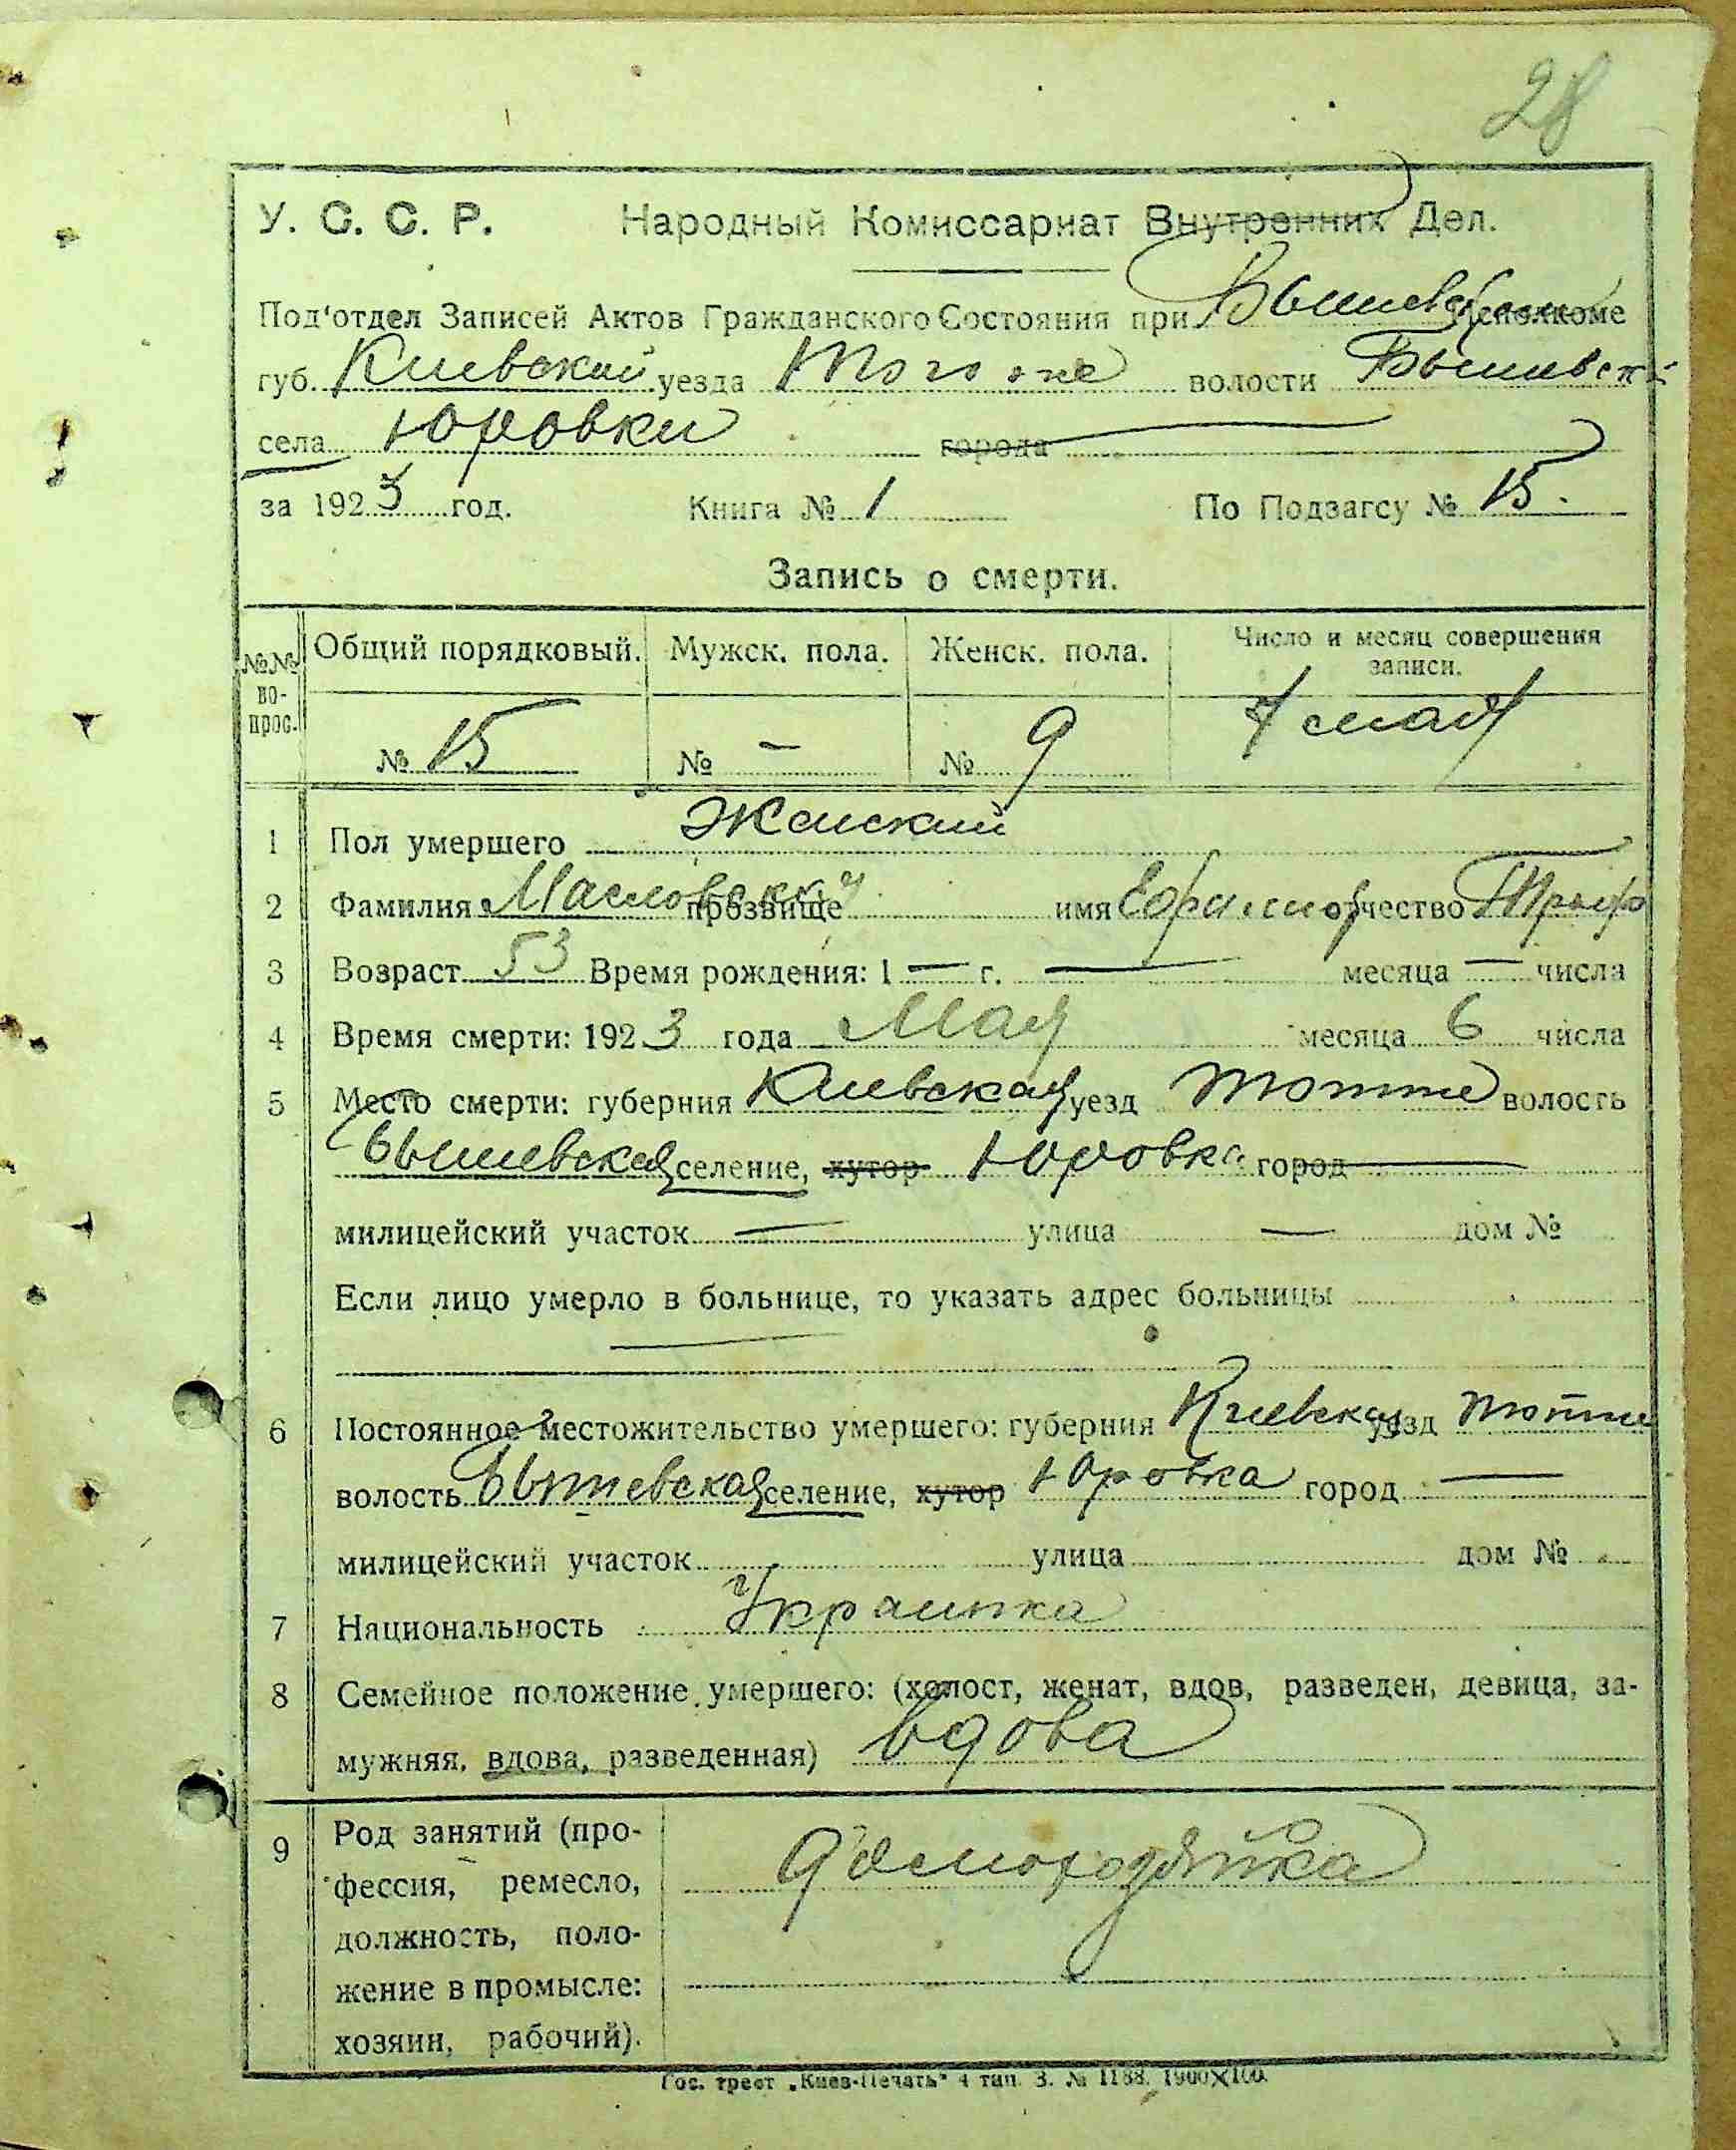 28
У. С. С. Р. Народный Комиссариат Внутренних Дел.
Под'отдел Записей Актов Гражданского Состояния при Исполкоме
губ. Киевской уезда того же волости Бышевской
села Юровки города
за 1923 год. Книга № 1 По Подзагсу № 15.
Запись о смерти.
№№ вопрос. Общий порядковый. Мужск. пола. Женск. пола. Число и месяц совершения записи.
№ 15 № — № 9 7 мая
1 Пол умершего Женский
2 Фамилия прозвище имя отчество
3 Возраст 53 Время рождения: 1 — г. — месяца — числа
4 Время смерти: 1923 года Мая месяца 6 числа
5 Место смерти: губерния Киевская уезд волость
Бышевская селение, хутор Юровка город —
милицейский участок — улица — дом №
Если лицо умерло в больнице, то указать адрес больницы
—
6 Постоянное местожительство умершего: губерния Киевская уезд
волость Бышевская селение, хутор Юровка город —
милицейский участок улица дом №
7 Национальность Украинка
8 Семейное положение умершего: (холост, женат, вдов, разведен, девица, за-
мужняя, вдова, разведенная) вдова
9 Род занятий (про-
фессия, ремесло,
должность, поло-
жение в промысле:
хозяин, рабочий).
Гос. трест „Киев-Печать" 4 тип. З. № 1188. 1900×100.